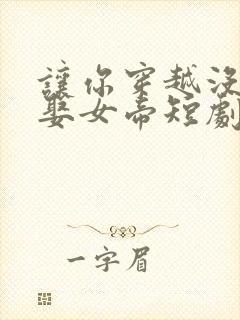 讓你穿越沒
娶女帝短劇
一字眉